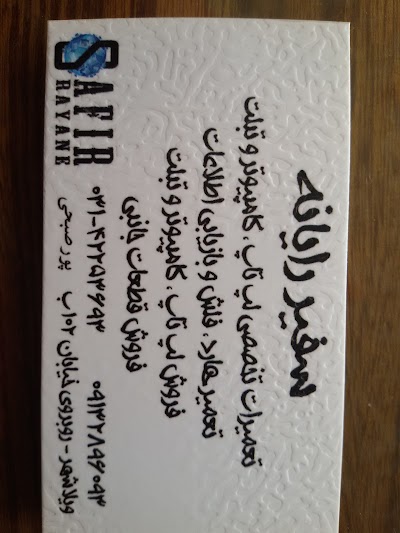 سفیر رایانه
تعمیرات تخصصی لپ تاپ ، کامپیوتر و تبلت
تعمیر هارد ، فلش و بازیابی اطلاعات
فروش لپ تاپ ، کامپیوتر و تبلت
فروش قطعات جانبی
SAFIR
RAYANE
۰۳۱-۴۲۲۵۳۶۹۳ ۰۹۱۳۲۸۹۶۰۹۳
پورصبحی
ویلاشهر - روبروی خیابان ۱۰۲ ب